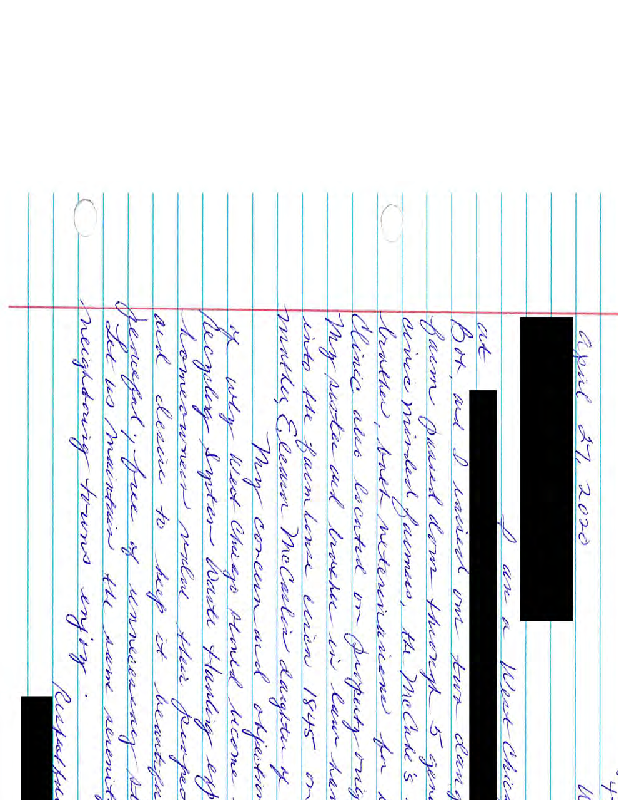 April 27, 2020
I am a West Chica
at
Bob and I raised our two daug
farm passed down through 5 gen
civic minded farmers, the McCabe's
brother, both veterinarians for
Clinic also located on property orig
My sister and brother in law have
into the farm home circa 1845 on
mother, Eleanor McCaslin daughter of
My concern and objection
is why West Chicago should become
Recycling System Waste Hauling
homeowner values their proper
and desire to keep it beautiful
peaceful, free of unnecessary
Let us maintain the same serenit
neighboring towns enjoy.
Respectfu